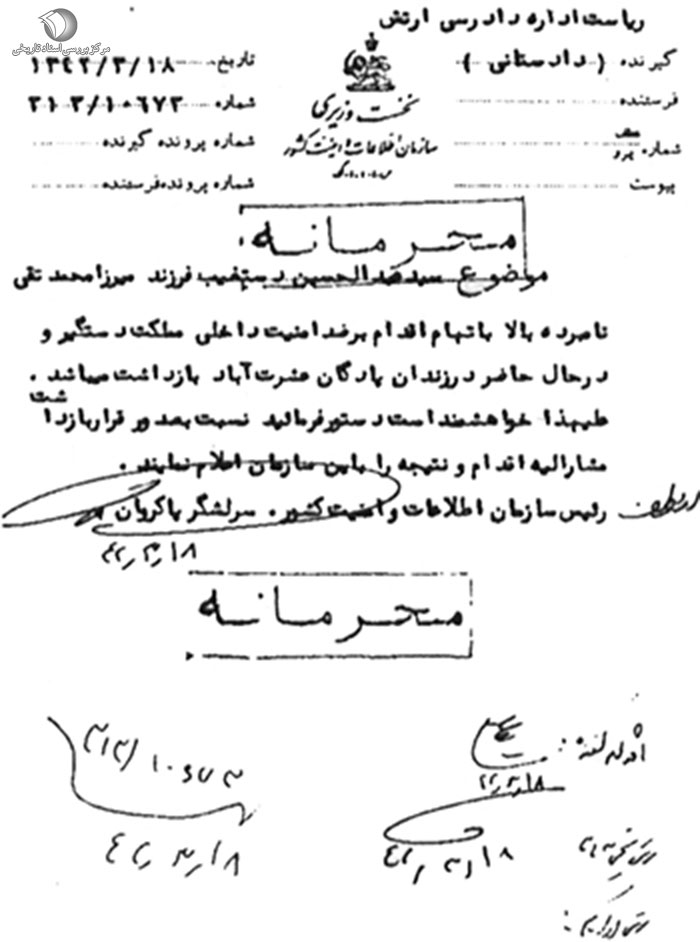 مرکز بررسی اسناد تاریخی
ریاست اداره دادرسی ارتش
گیرنده ( دادستانی )
فرستنده
شماره پرو
پیوست
نخست وزیری
سازمان اطلاعات و امنیت کشور
س.ا.و.ا.ک
تاریخ ۱۳۴۲/۳/۱۸
شماره ۳۱۲/۱۰۶۷۳
شماره پرونده گیرنده
شماره پرونده فرستنده
محرمانه
موضوع سیدعبدالحسین دستغیب فرزند میرزامحمد تقی
نامبرده بالا باتهام اقدام برضد امنیت داخلی مملکت دستگیر و
درحال حاضر در زندان پادگان عشرت آباد بازداشت میباشد .
علیهذا خواهشمند است دستور فرمائید نسبت بصدور قرار بازداشت
مشارالیه اقدام و نتیجه را باین سازمان اعلام نمایند .
رئیس سازمان اطلاعات و امنیت کشور . سرلشگر پاکروان
از طرف
۴۲٫۳٫۱۸
محرمانه
اقدام کننده :
۴۲٫۳٫۱۸
۳۱۲/۱۰۶۷۳
۴۲٫۳٫۱۸
رئیس بخش
۴۲٫۳٫۱۸